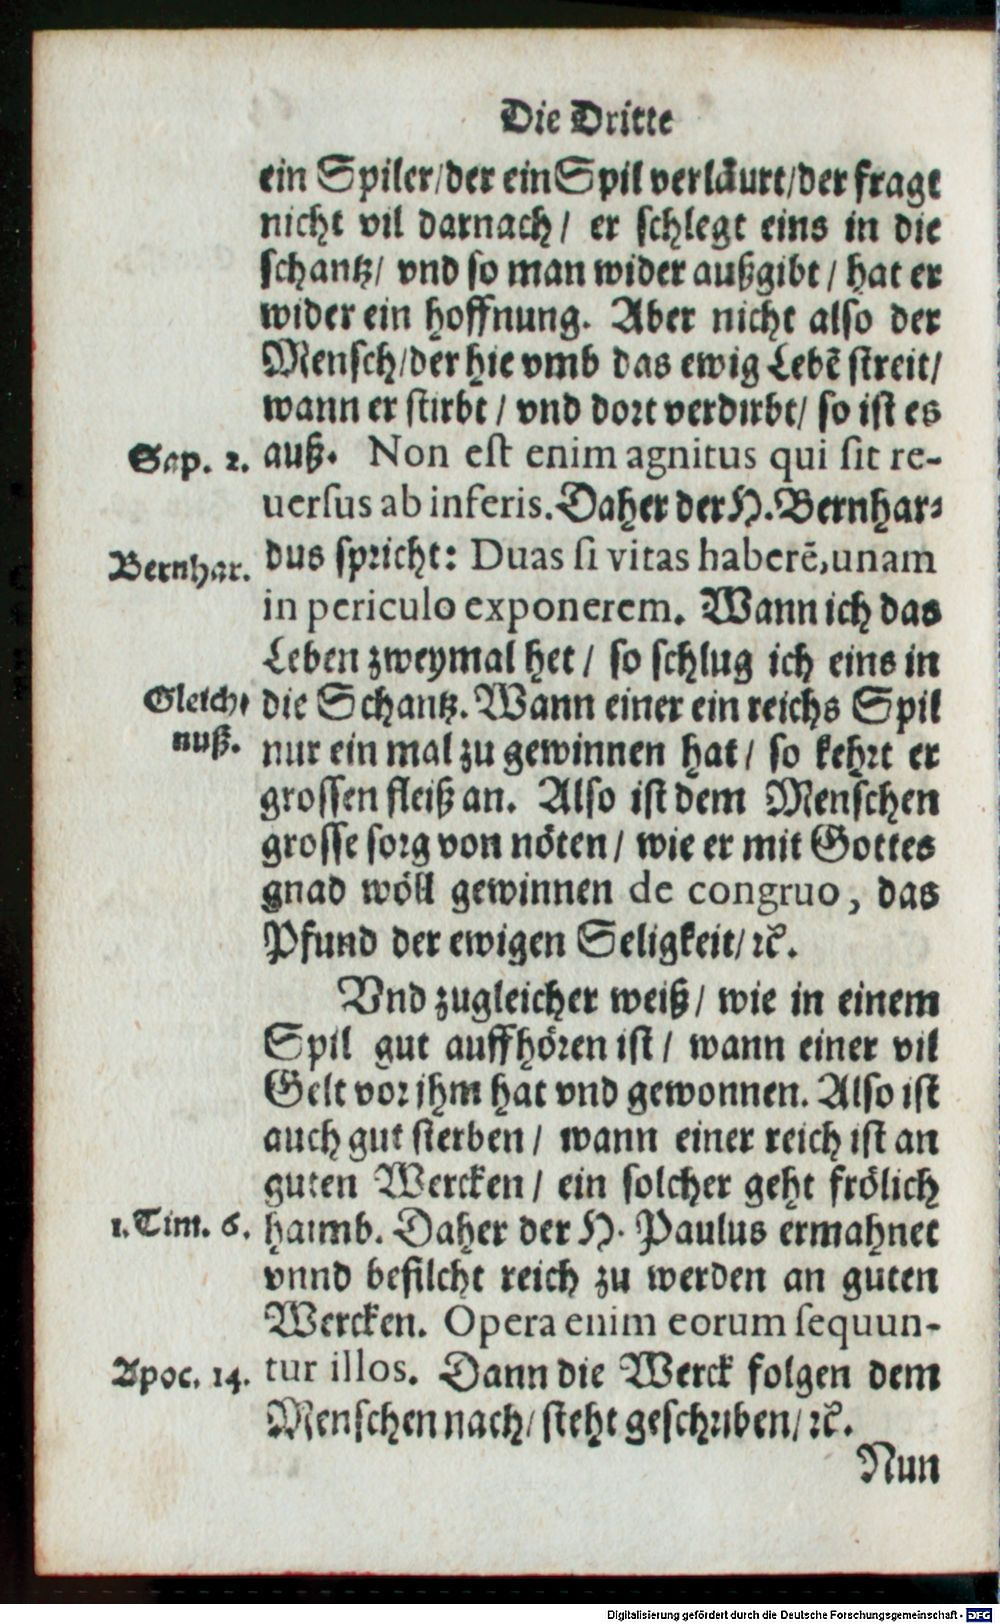 Die Dritte
ein Spiler/der ein Spil verläurt/der fragt
nicht vil darnach/ er schlegt eins in die
schantz/ vnd so man wider außgibt/ hat er
wider ein hoffnung. Aber nicht also der
Mensch/der hie vmb das ewig Lebē streit/
wann er stirbt/ vnd dort verdirbt/ so ist es
Sap. 2. auß. Non est enim agnitus qui sit re-
uersus ab inferis. Daher der H. Bernhar-
Bernhar. dus spricht: Duas si vitas haberē, unam
in periculo exponerem. Wann ich das
Leben zweymal het/ so schlug ich eins in
Gleich- die Schantz. Wann einer ein reichs Spil
nuß. nur ein mal zu gewinnen hat/ so kehrt er
grossen fleiß an. Also ist dem Menschen
grosse sorg von nöten/ wie er mit Gottes
gnad wöll gewinnen de congruo, das
Pfund der ewigen Seligkeit/ ꝛc.
Vnd zugleicher weiß/ wie in einem
Spil gut auffhören ist/ wann einer vil
Gelt vor jhm hat vnd gewonnen. Also ist
auch gut sterben/ wann einer reich ist an
guten Wercken/ ein solcher geht frölich
1. Tim. 6. haimb. Daher der H. Paulus ermahnet
vnnd befilcht reich zu werden an guten
Wercken. Opera enim eorum sequun-
Apoc. 14. tur illos. Dann die Werck folgen dem
Menschen nach/ steht geschriben/ ꝛc.
Nun
Digitalisierung gefördert durch die Deutsche Forschungsgemeinschaft - DFG